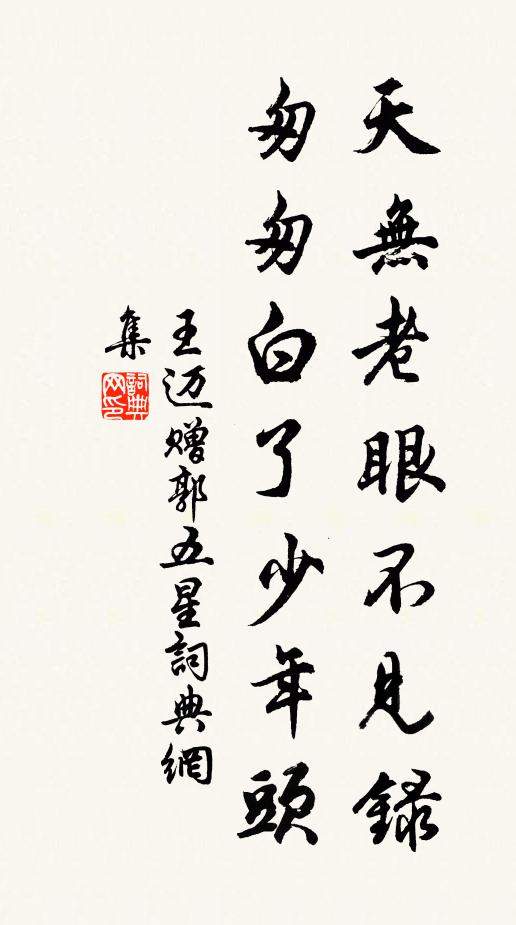 天無老眼不見録
匆匆白了少年頭
王迈赠郭五星詞典網
集
詞典
网印